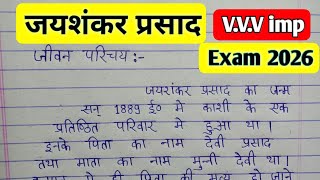 जयशंकर प्रसाद
V.V.V imp
Exam 2026
जीवन परिचय :-
जयशंकर प्रसाद का जन्म
सन् 1889 ई० मे काशी के एक
प्रतिष्ठित परिवार मे हुआ था ।
इनके पिता का नाम देवी प्रसाद
तथा माता का नाम मुन्नी देवी था ।